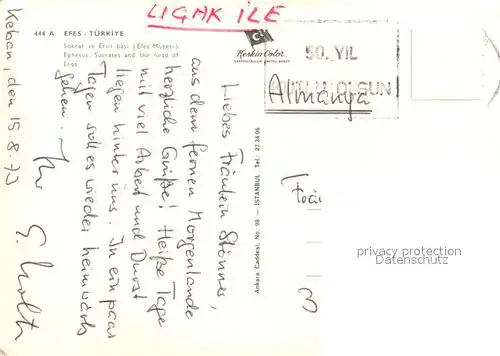 UÇAK İLE
444 A EFES - TÜRKİYE
Sokrat ve Eros başı (Efes Müzesi)
Ephesus, Sokrates and the head of
Eros
Keskin Color
50. YIL
KUTLU OLSUN
Almanya
Ankara Caddesi, No. 98 — ISTANBUL
Keban, den 15.8.73
Liebes Fräulein Stönner,
aus dem fernen Morgenlande
herzliche Grüße! Heiße Tage
mit viel Arbeit und Durst
liegen hinter uns. In ein paar
Tagen soll es wieder heimwärts
gehen. Ihr
privacy protection
Datenschutz